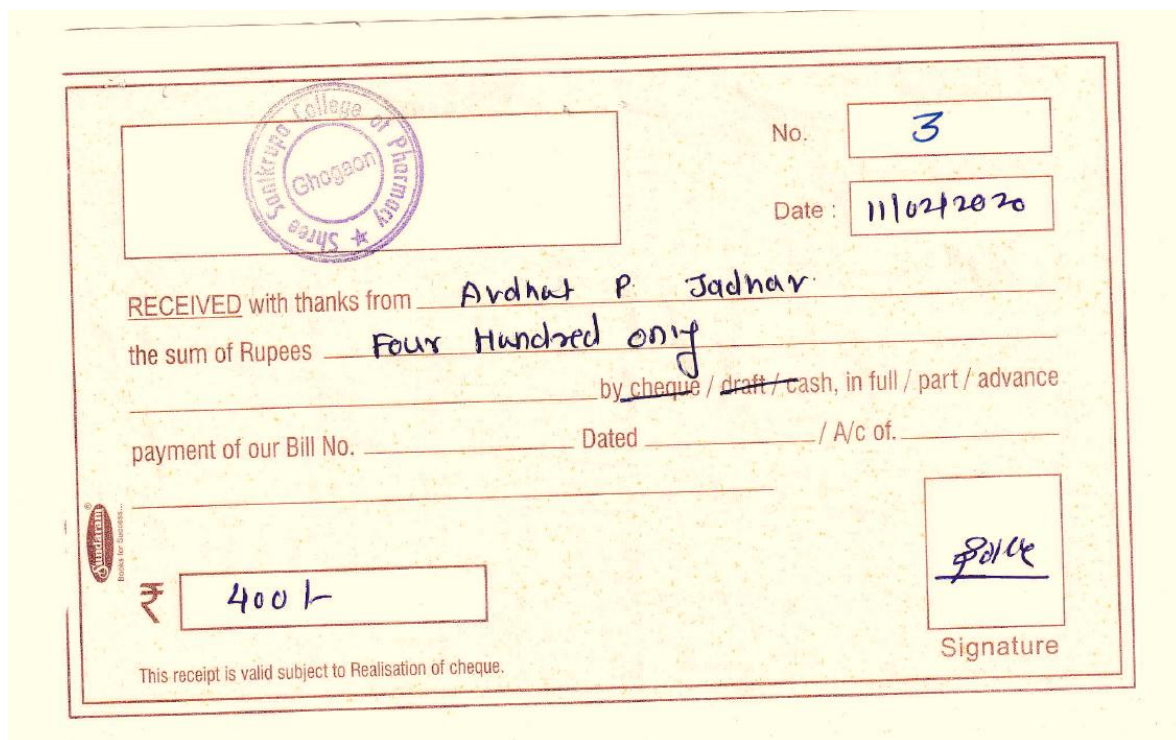 Shree Santkrupa College of Pharmacy ★
Ghogaon
No. 3
Date : 11/02/2020
RECEIVED with thanks from Avdhut P. Jadhav.
the sum of Rupees Four Hundred only
by cheque / draft / cash, in full / part / advance
payment of our Bill No. Dated / A/c of.
Sundaram®
Books for Success...
₹ 400/-
Signature
This receipt is valid subject to Realisation of cheque.